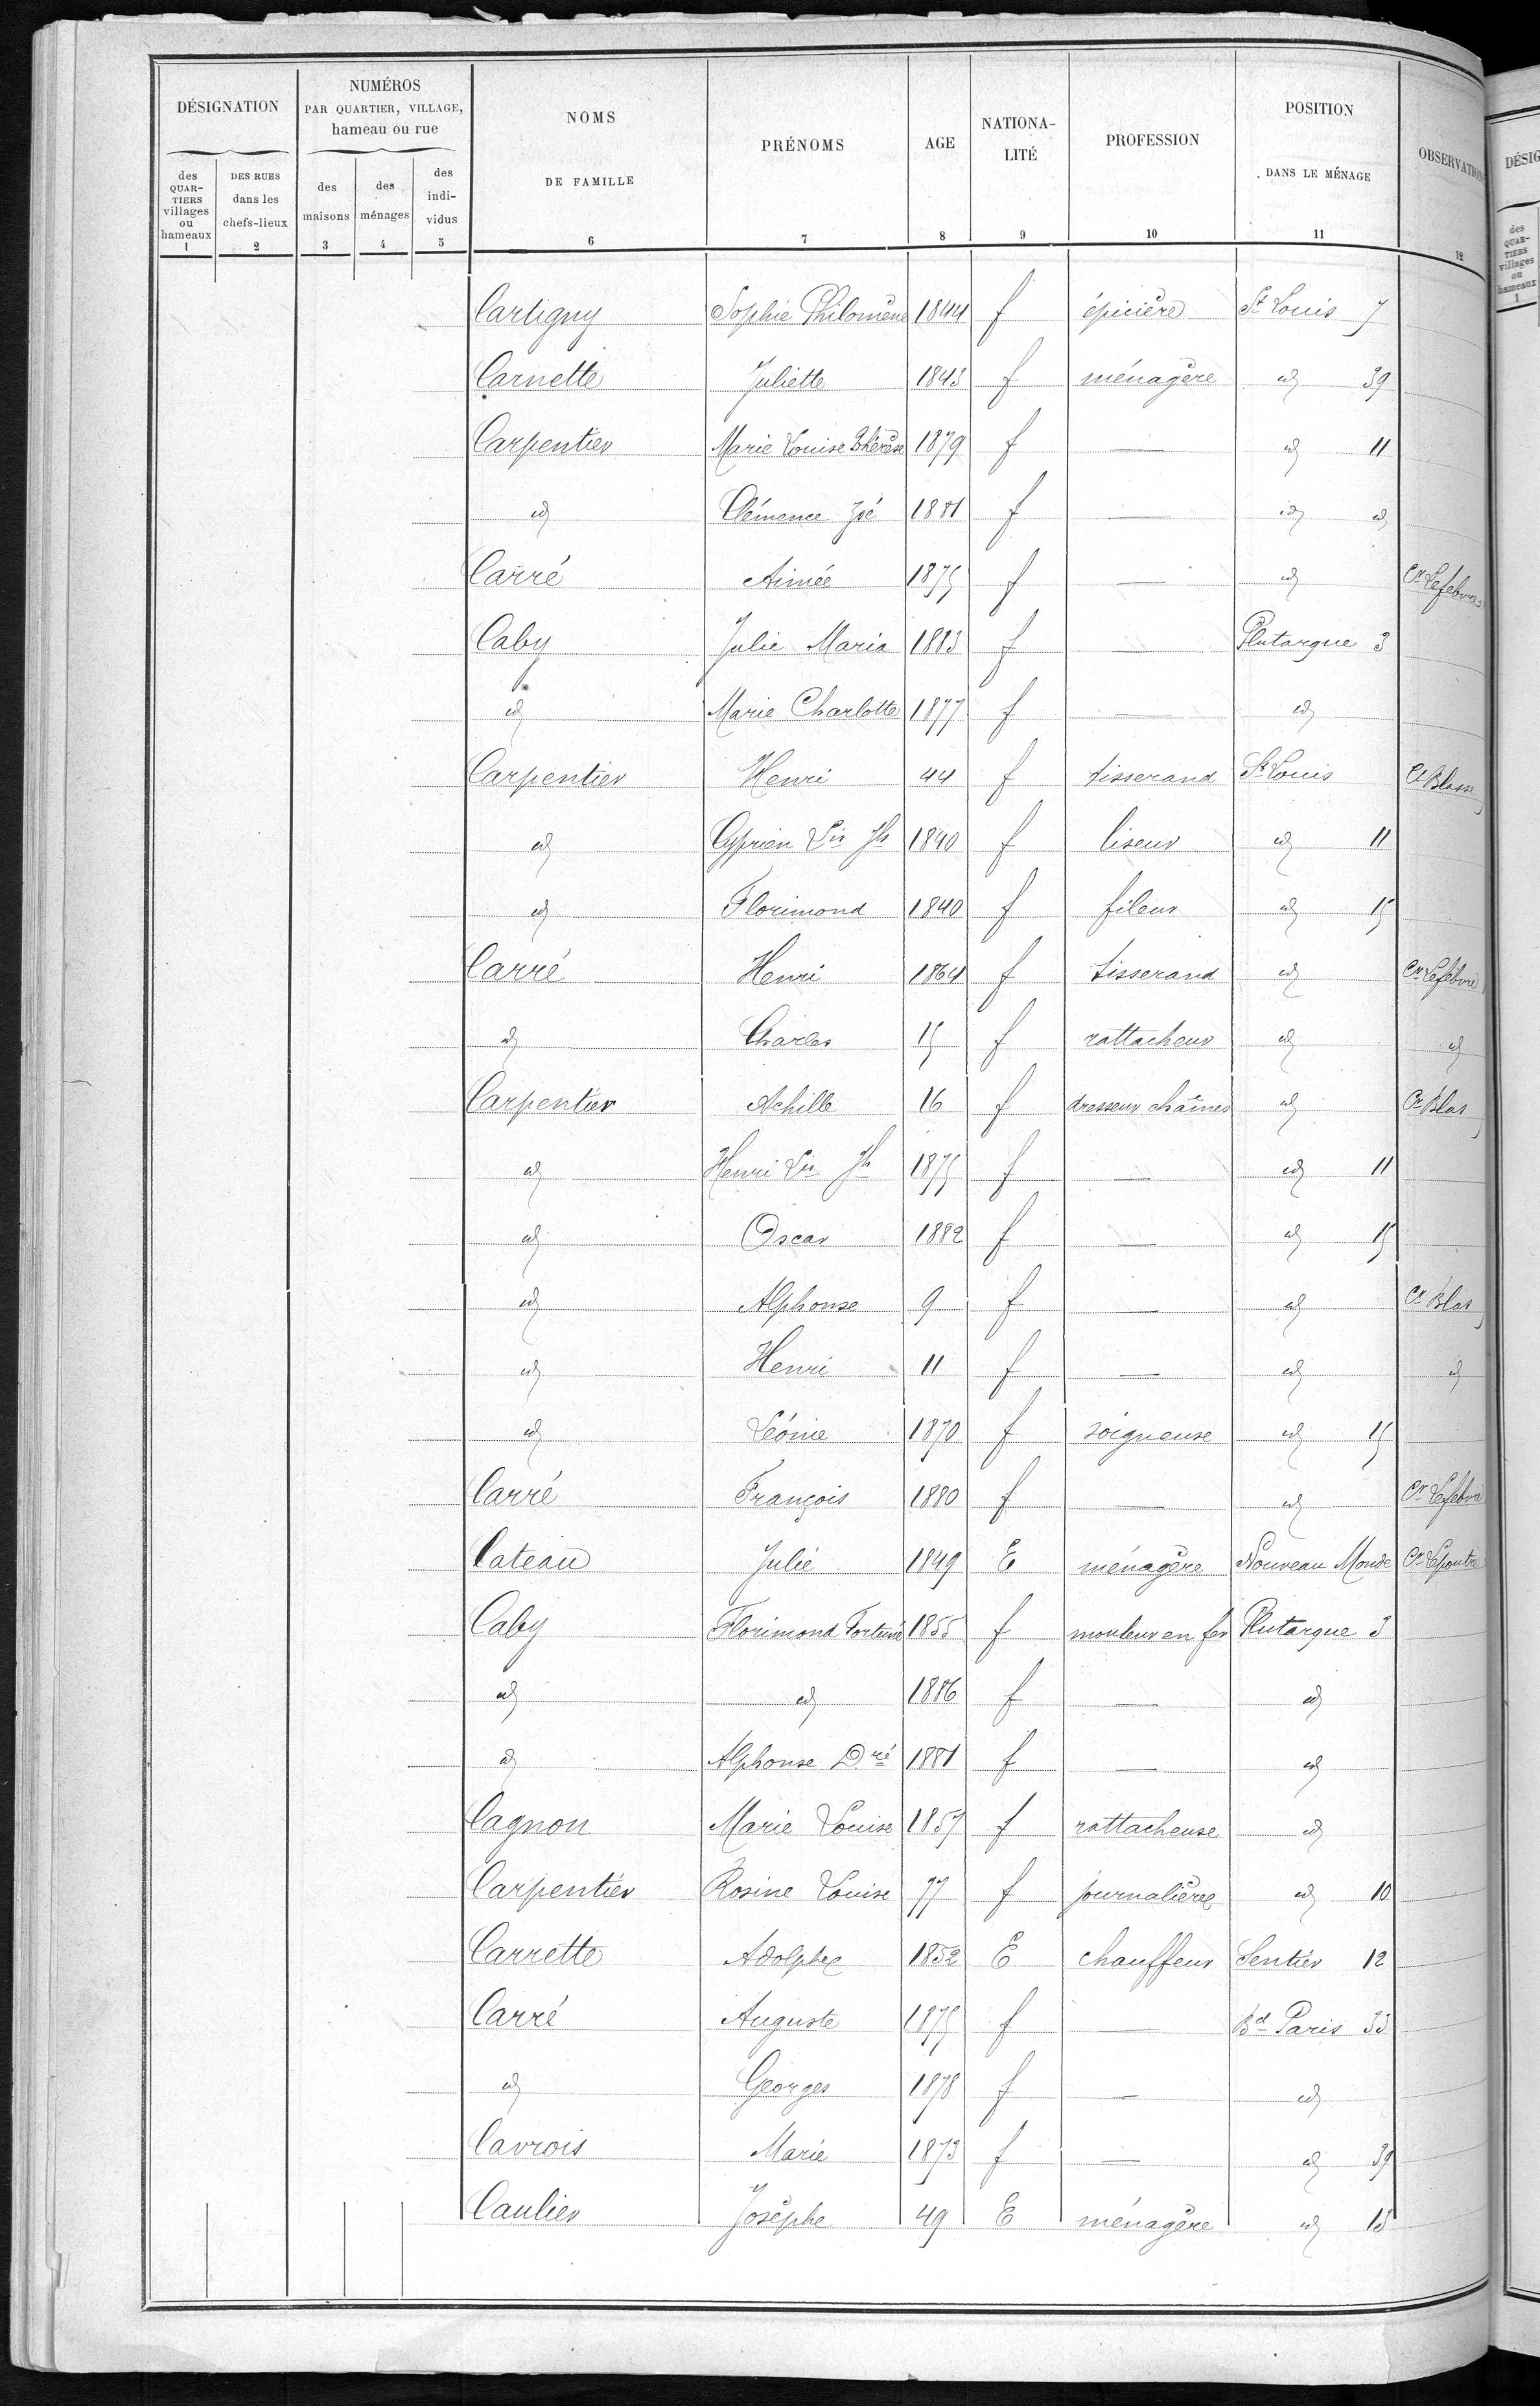 DÉSIGNATION
NUMÉROS
PAR QUARTIER, VILLAGE,
hameau ou rue
NOMS
DE FAMILLE
PRÉNOMS
AGE
NATIONA-
LITÉ
PROFESSION
POSITION
DANS LE MÉNAGE
OBSERVATIONS
des
QUAR-
TIERS
villages
ou
hameaux
DES RUES
dans les
chefs-lieux
des
maisons
des
ménages
des
indi-
vidus
1 2 3 4 5 6 7 8 9 10 11 12
Cartigny Sophie Philomène 1844 f épicière St Louis 7
Carnette Juliette 1843 f ménagère id 39
Carpentier Marie Louise Thérèse 1879 f — id 11
id Clémence Zoé 1881 f — id id
Carré Aimée 1875 f — id Cr Lefebvre
Caby Julie Maria 1883 f — Plutarque 3
id Marie Charlotte 1877 f — id
Carpentier Henri 44 f tisserand St Louis Cr Blasse
id Cyprien Lis Jh 1840 f liseur id 11
id Florimond 1840 f fileur id 15
Carré Henri 1864 f tisserand id Cr Lefebvre
id Charles 15 f rattacheur id id
Carpentier Achille 16 f dresseur chaînes id Cr Blas
id Henri Lis Jh 1875 f — id 11
id Oscar 1882 f — id 15
id Alphonse 9 f — id Cr Blas
id Henri 11 f — id id
id Léonie 1870 f soigneuse id 15
Carré François 1880 f — id Cr Lefebvre
Cateau Julie 1849 E ménagère Nouveau Monde Cr Lepoutre
Caby Florimond Fortuné 1855 f mouleur en fer Plutarque 3
id id 1886 f — id
id Alphonse Dré 1881 f — id
Cagnon Marie Louise 1857 f rattacheuse id
Carpentier Rosine Louise 77 f journalière id 10
Carrette Adolphe 1852 E chauffeur Sentier 12
Carré Auguste 1875 f — Bd Paris 33
id Georges 1878 f — id
Cavrois Marie 1873 f — id 39
Caulier Josèphe 49 E ménagère id 13
DÉSIG
des
QUAR-
TIERS
villages
ou
hameaux
1